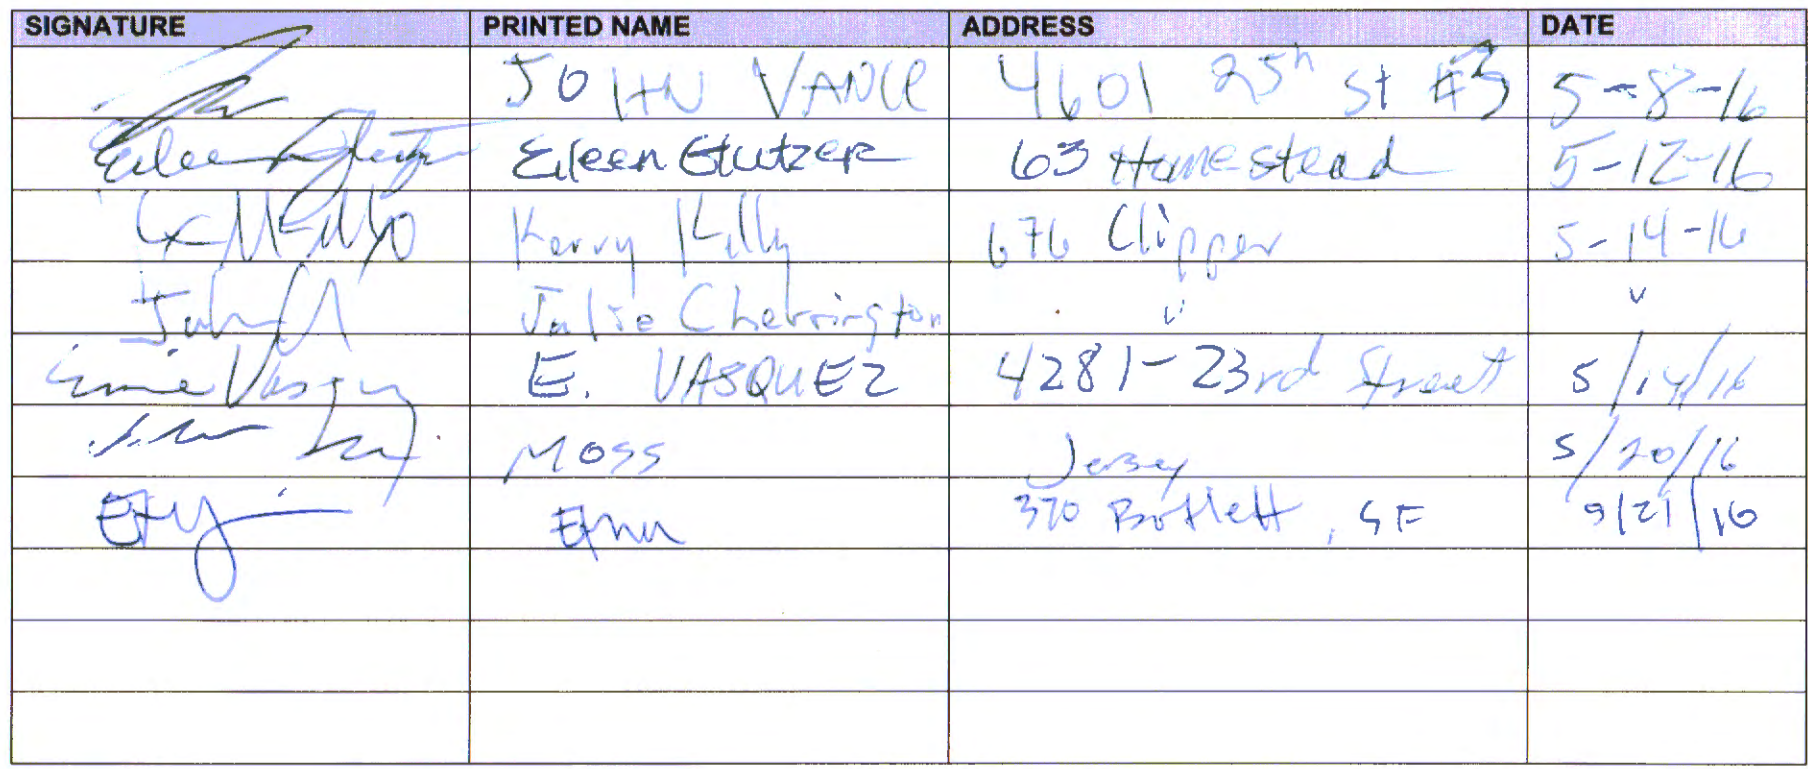 SIGNATURE PRINTED NAME ADDRESS DATE
JOHN VANCE 4601 25th St #3 5-8-16
Eileen Eileen Glutzer 63 Homestead 5-12-16
Kerry Kelly 676 Clipper 5-14-16
Julie Cherrington " "
Ernie Vasquez E. VASQUEZ 4281-23rd Street 5/14/16
Moss Jersey 5/20/16
370 Bartlett, SF 5/21/16